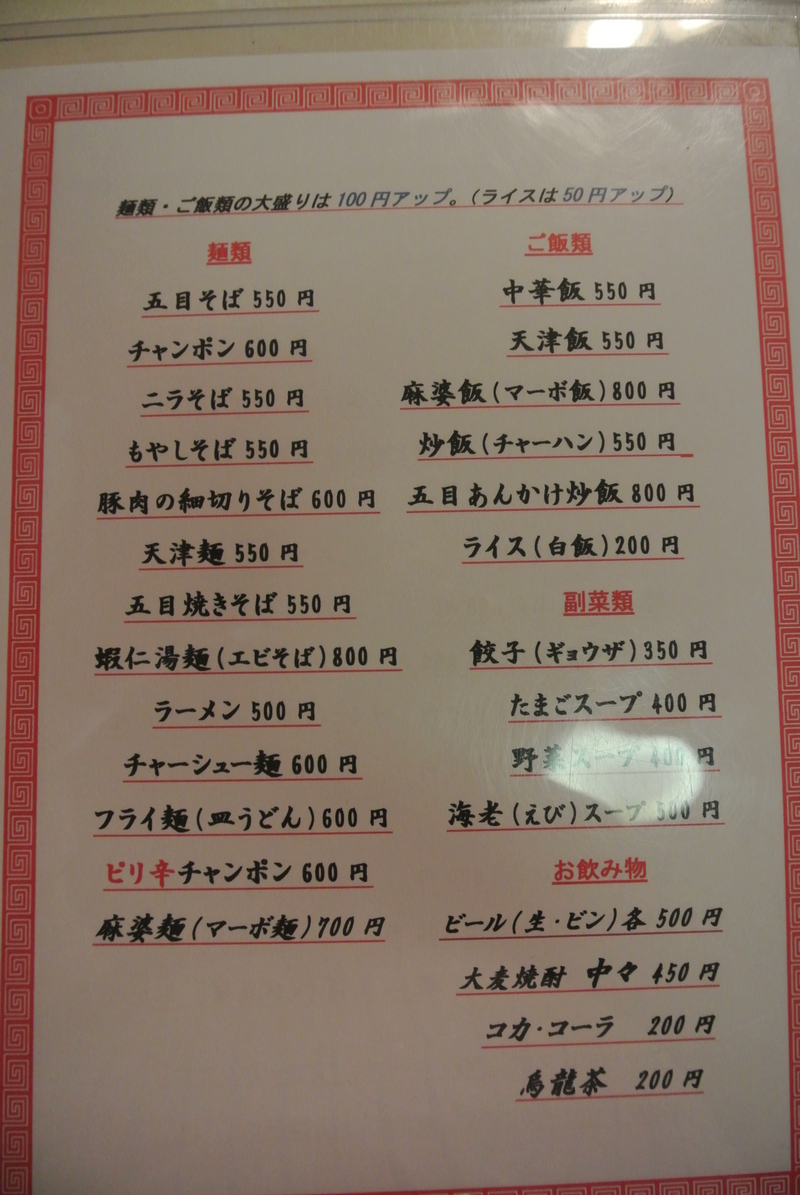 麺類・ご飯類の大盛りは100円アップ。(ライスは50円アップ)
麺類
五目そば 550 円
チャンポン 600 円
ニラそば 550 円
もやしそば 550 円
豚肉の細切りそば 600 円
天津麺 550 円
五目焼きそば 550 円
蝦仁湯麺(エビそば)800 円
ラーメン 500 円
チャーシュー麺 600 円
フライ麺(皿うどん)600 円
ピリ辛チャンポン 600 円
麻婆麺(マーボ麺)700 円
ご飯類
中華飯 550 円
天津飯 550 円
麻婆飯(マーボ飯)800 円
炒飯(チャーハン)550 円
五目あんかけ炒飯 800 円
ライス(白飯)200 円
副菜類
餃子(ギョウザ)350 円
たまごスープ 400 円
野菜スープ 400 円
海老(えび)スープ 500 円
お飲み物
ビール(生・ビン)各 500 円
大麦焼酎 中々 450 円
コカ・コーラ 200 円
烏龍茶 200 円